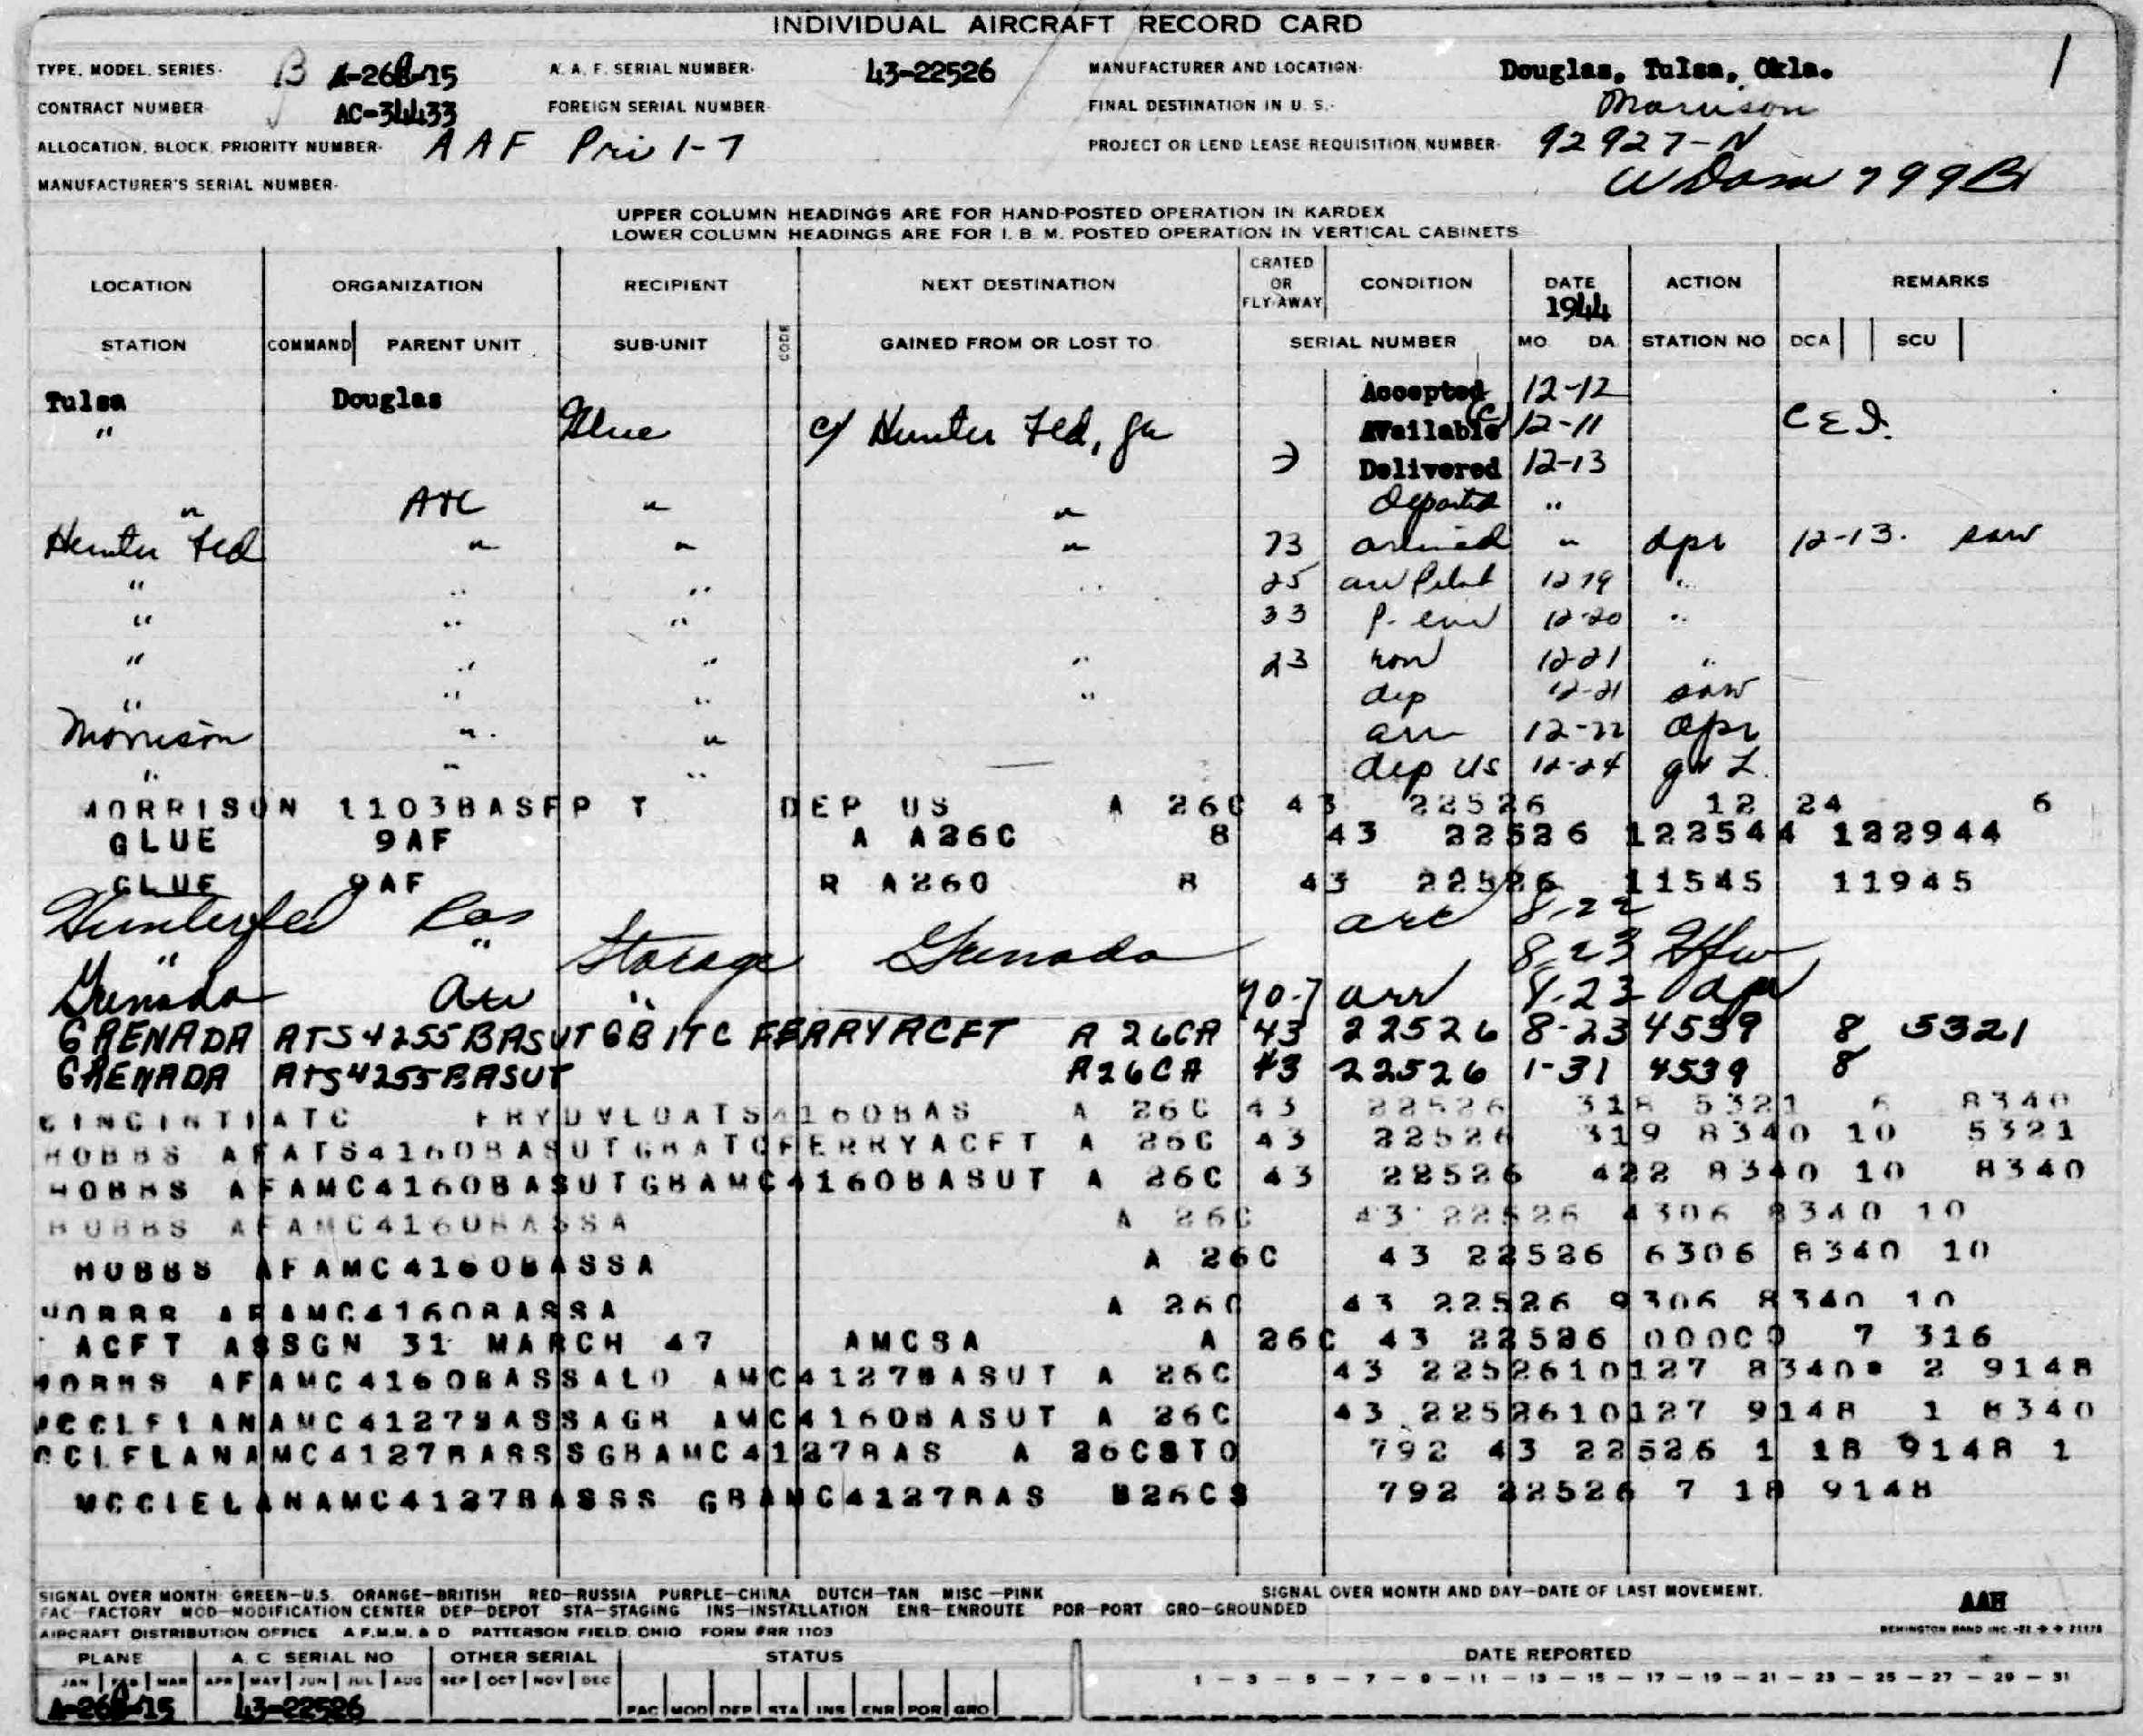 INDIVIDUAL AIRCRAFT RECORD CARD
1
TYPE, MODEL, SERIES- B A-26B-15 A. A. F. SERIAL NUMBER- 43-22526 MANUFACTURER AND LOCATION- Douglas, Tulsa, Okla.
CONTRACT NUMBER AC-34433 FOREIGN SERIAL NUMBER- FINAL DESTINATION IN U. S.- Morrison
ALLOCATION, BLOCK, PRIORITY NUMBER- AAF Pri 1-7 PROJECT OR LEND LEASE REQUISITION NUMBER- 92927-N
MANUFACTURER'S SERIAL NUMBER- 799B
UPPER COLUMN HEADINGS ARE FOR HAND-POSTED OPERATION IN KARDEX
LOWER COLUMN HEADINGS ARE FOR I. B. M. POSTED OPERATION IN VERTICAL CABINETS
LOCATION ORGANIZATION RECIPIENT NEXT DESTINATION CRATED OR FLY-AWAY CONDITION DATE 1944 ACTION REMARKS
STATION COMMAND PARENT UNIT SUB-UNIT CODE GAINED FROM OR LOST TO SERIAL NUMBER MO. DA. STATION NO DCA SCU
Tulsa Douglas Accepted 12-12
" Glue c/ Hunter Fld, Ga Available (C) 12-11 C E I.
Delivered 12-13
" ATC " " Departed "
Hunter Fld " " " 73 arrived " dpr 12-13. saw
" " " " 25 aw Pilot 12 19 "
" " " 33 P. enr 12-20 "
" " " " 23 ron 12-21 "
" " " " dep 12-21 saw
Morrison " " arr 12-22 apr
" " " dep US 12-24
MORRISON 1103BASFP T DEP US A 26C 43 22526 12 24 6
GLUE 9AF A A26C 8 43 22526 122544 122944
GLUE 9AF R A260 8 43 22526 11545 11945
Hunter fld 8-22
" " Storage Grenada 8-23
Grenada " 70-7 arr 8-23
GRENADA ATS4255BASUTGBITC FERRYACFT A 26CA 43 22526 8-23 4539 8 5321
GRENADA ATS4255BASUT A26CA 43 22526 1-31 4539 8
CINCINTIATC FRYDVLOATS4160BAS A 26C 43 22526 318 5321 6 8340
HOBBS AFATS4160BASUTGBATCFERRYACFT A 26C 43 22526 319 8340 10 5321
HOBBS AFAMC4160BASUTGBAMC4160BASUT A 26C 43 22526 422 8340 10 8340
HOBBS AFAMC4160BASSA A 26C 43 22526 4306 8340 10
HOBBS AFAMC4160BASSA A 26C 43 22526 6306 8340 10
HOBBS AFAMC4160BASSA A 26C 43 22526 9306 8340 10
ACFT ASSGN 31 MARCH 47 AMCSA A 26C 43 22526 00000 7 316
HOBBS AFAMC4160BASSALO AMC4127BASUT A 26C 43 2252610127 8340 2 9148
MCCLELANAMC4127BASSAGB AMC4160BASUT A 26C 43 2252610127 9148 1 8340
CCLELANAMC4127BASSSGBAMC4127BAS A 26CSTO 792 43 22526 1 18 9148 1
MCCLELANAMC4127BASSS GBAMC4127BAS B26CS 792 22526 7 18 9148
SIGNAL OVER MONTH: GREEN—U.S. ORANGE—BRITISH RED—RUSSIA PURPLE—CHINA DUTCH—TAN MISC—PINK SIGNAL OVER MONTH AND DAY—DATE OF LAST MOVEMENT.
FAC—FACTORY MOD—MODIFICATION CENTER DEP—DEPOT STA—STAGING INS—INSTALLATION ENR—ENROUTE POR—PORT GRO—GROUNDED AAH
AIRCRAFT DISTRIBUTION OFFICE A.F.M.M. & D PATTERSON FIELD, OHIO FORM #RR 1103 REMINGTON RAND INC.
PLANE A. C SERIAL NO OTHER SERIAL STATUS DATE REPORTED
JAN FEB MAR APR MAY JUN JUL AUG SEP OCT NOV DEC 1 — 3 — 5 — 7 — 9 — 11 — 13 — 15 — 17 — 19 — 21 — 23 — 25 — 27 — 29 — 31
A-26B-15 43-22526 FAC MOD DEP STA INS ENR POR GRO